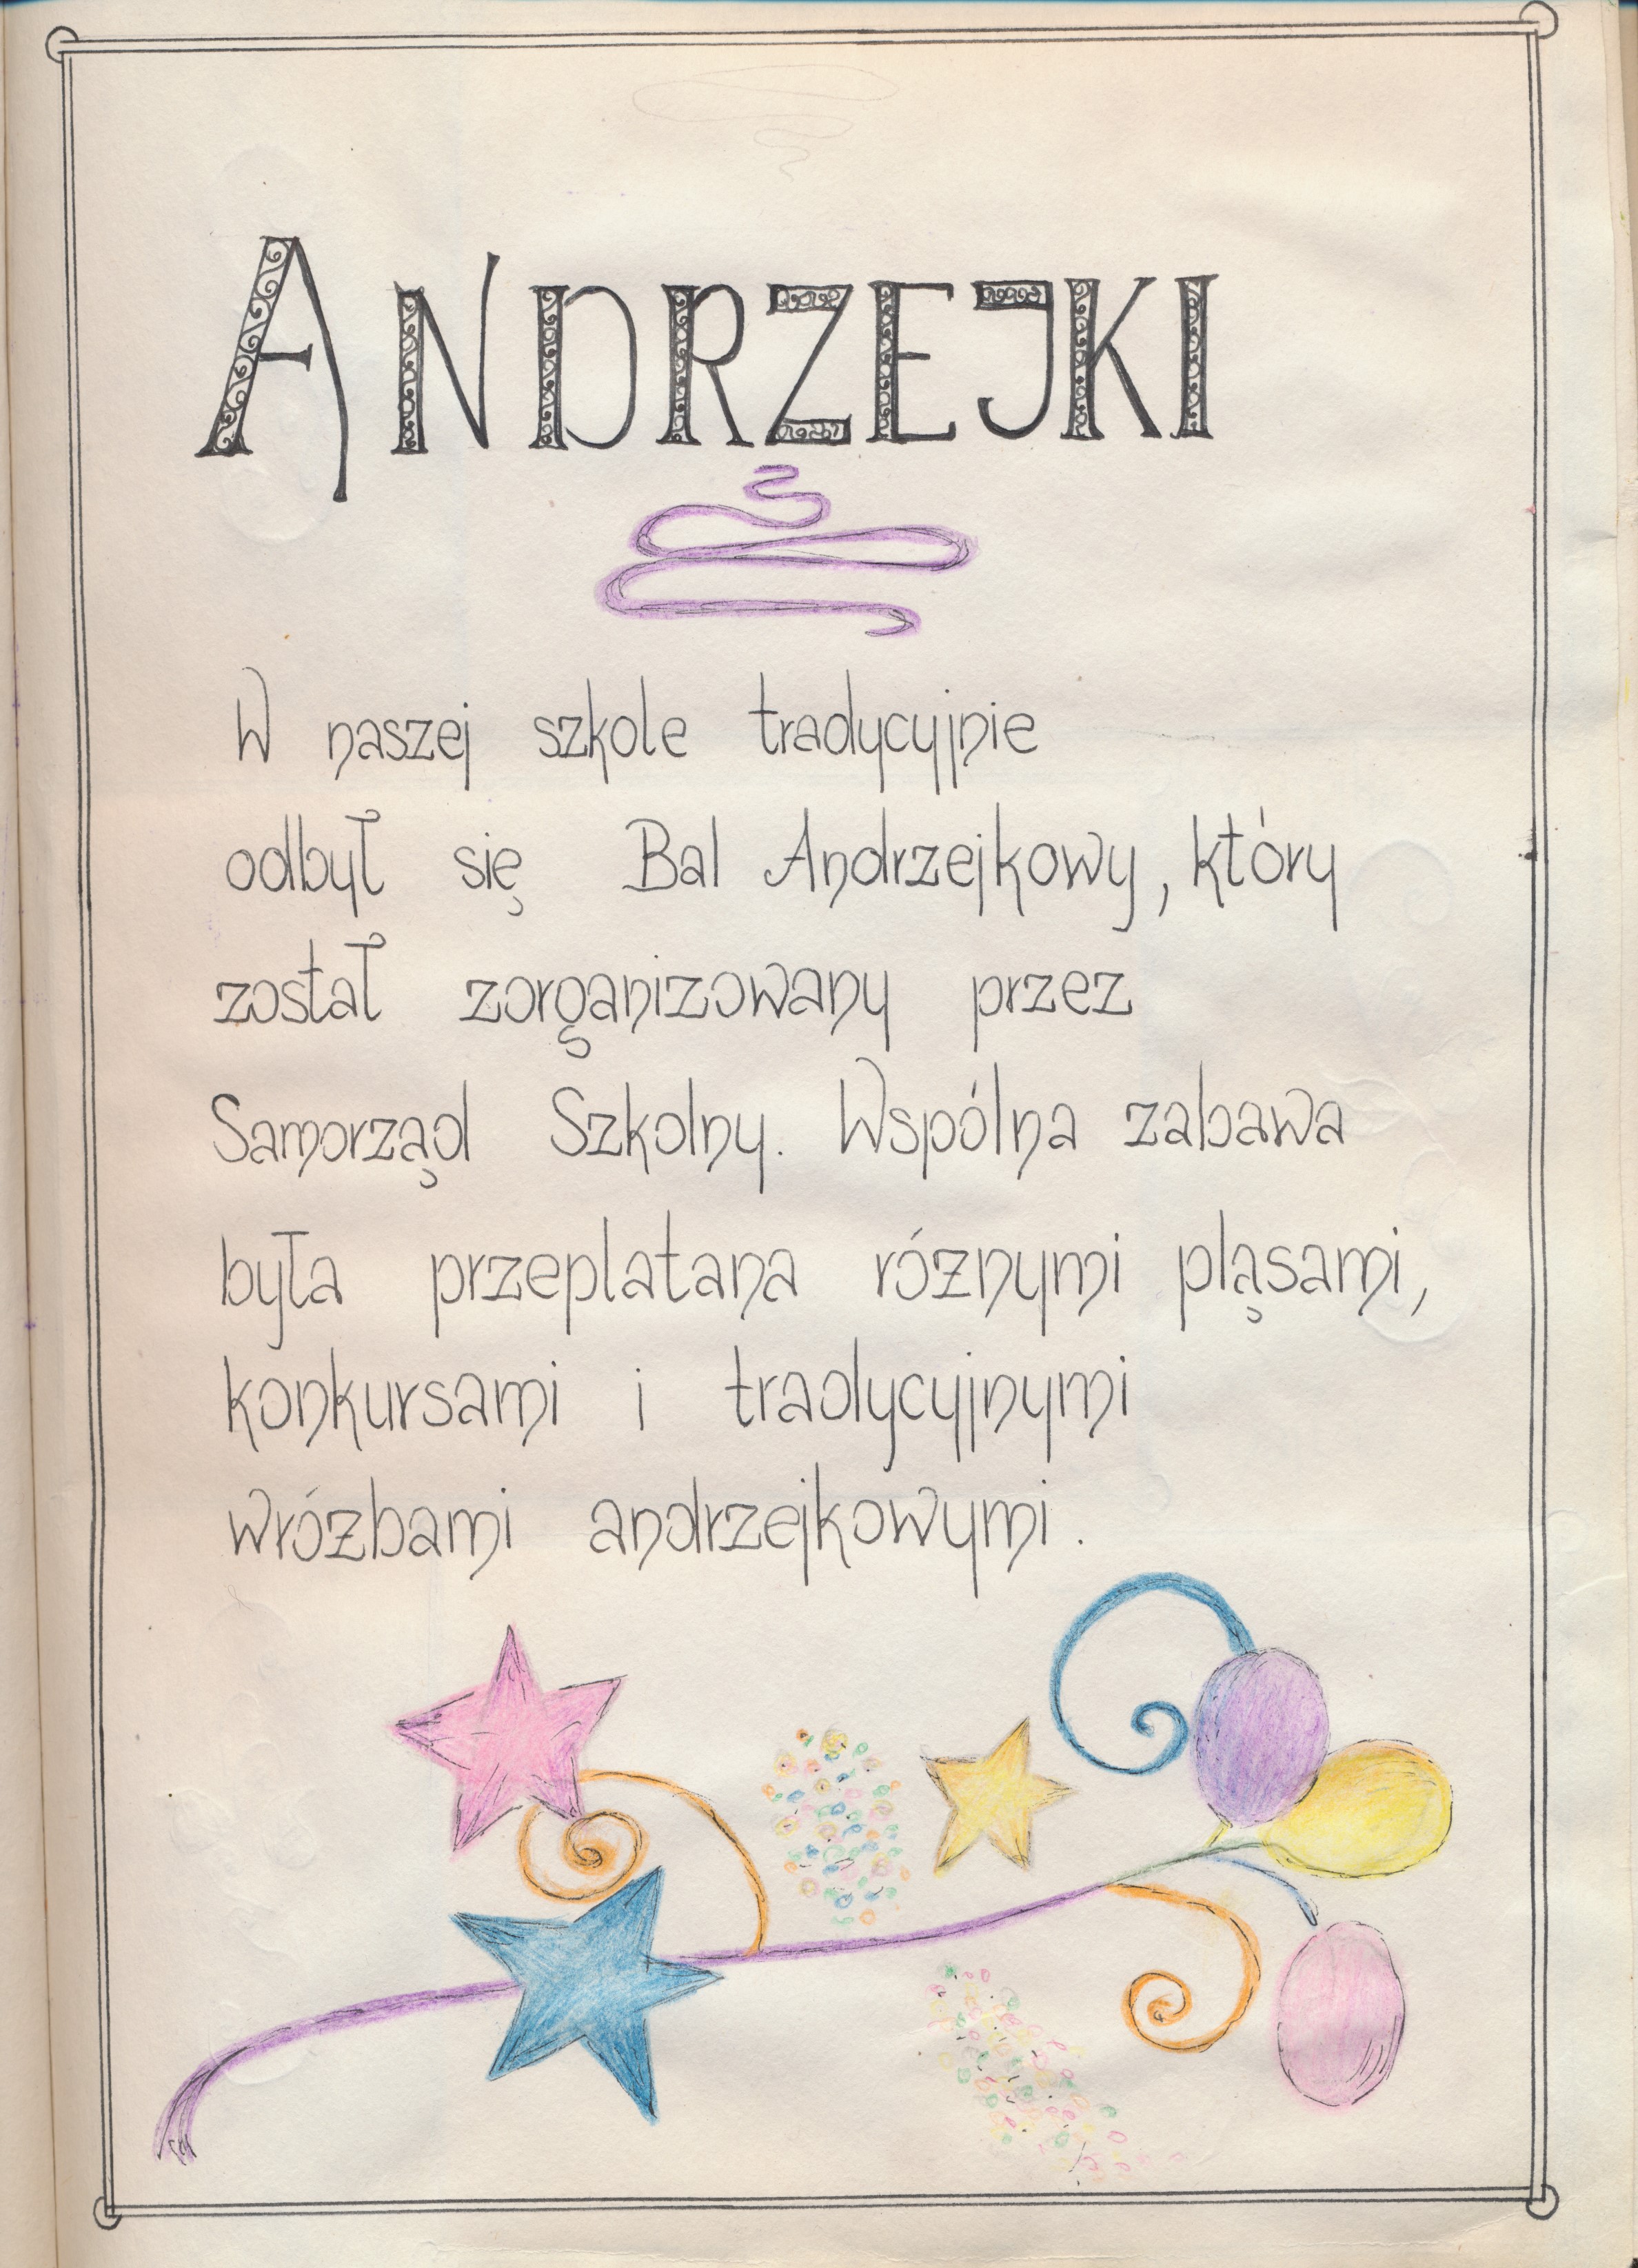 ANDRZEJKI
W naszej szkole tradycyjnie
odbył się Bal Andrzejkowy, który
został zorganizowany przez
Samorząd Szkolny. Wspólna zabawa
była przeplatana różnymi pląsami,
konkursami i tradycyjnymi
wróżbami andrzejkowymi.